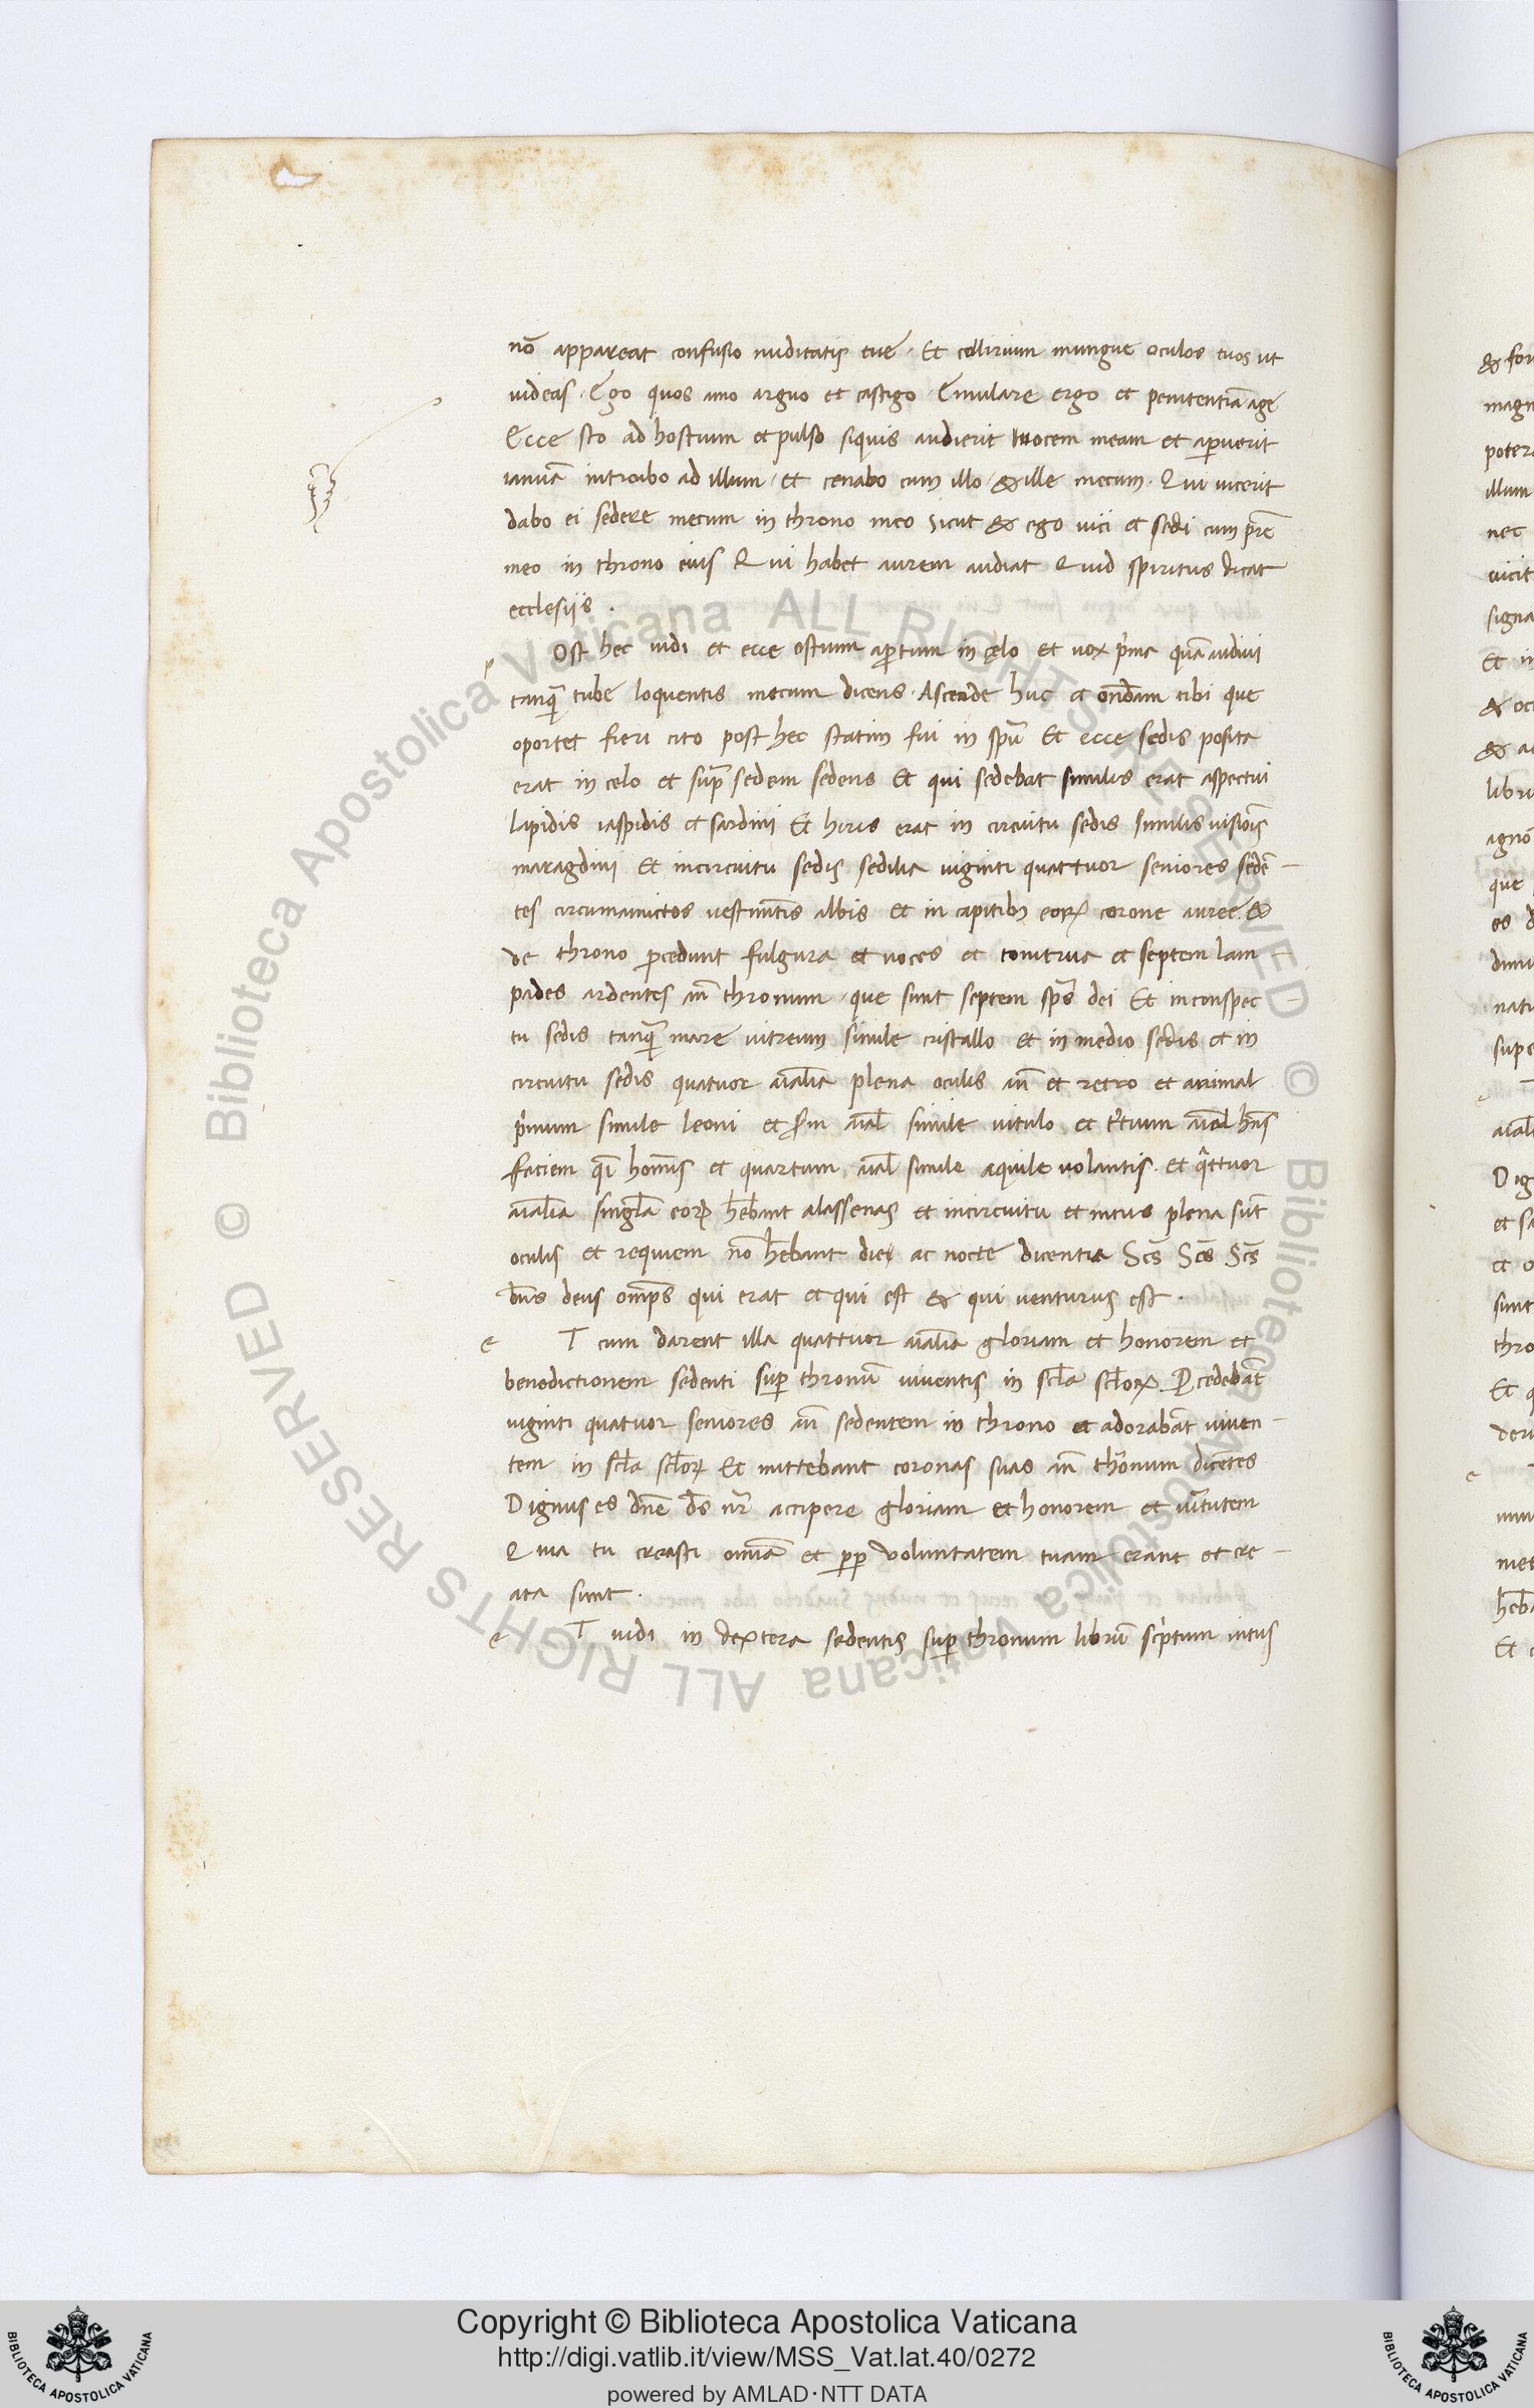 nō appareat confusio nuditatis tue · Et collirium inungue oculos tuos ut
uideas · Ego quos amo arguo et castigo · Emulare ergo et penitentiā age
Ecce sto ad hostium et pulso siquis audierit uocem meam et aperuerit
ianuā introibo ad illum · et cenabo cum illo · & ille mecum · Qui uicerit
dabo ei sedere mecum in throno meo sicut & ego uici et sedi cum pr̄e
meo in throno eius Qui habet aurem audiat Quid spiritus dicat
ecclesiis ·
p Ost hec uidi et ecce ostium ap̄tum in cęlo et uox p̄ma quā audiui
tanqꝫ tube loquentis mecum dicens · Ascende huc et ondā̄m tibi que
oportet fieri cito post hec statim fui in spū Et ecce sedis posita
erat in celo et sup̄ sedem sedens Et qui sedebat similis erat aspectui
lapidis iaspidis et sardini Et hiris erat in circuitu sedis similis uisiōis
maragdini Et incircuitu sedis sedilia uiginti quattuor seniores sedē-
tes circumamictos uestimētis albis Et in capitibꝫ eoꝝ corone auree · &
de throno p̄cedunt fulgura et uoces et tonitrua et septem lam-
pades ardentes an̄ thronum · que sunt septem sp̄s dei Et inconspec-
tu sedis tanqꝫ mare uitreum simile cristallo et in medio sedis et in
circuitu sedis quatuor aīalia plena oculis an̄ et retro et animal
p̄mum simile leoni et scd̄m aīal simile uitulo et t̄tium aīal hn̄s
faciem q̄i homīs et quartum aīal simile aquile uolantis · et q̄ttuor
aīalia singl̄a eoꝝ hēbant alas senas et incircuitu et intus plena sūt
oculis et requiem nō hēbant die ac nocte dicentia Sc̄s Sc̄s Sc̄s
dn̄s deus omp̄s qui erat et qui est & qui uenturus est ·
e T cum darent illa quattuor aīalia gloriam et honorem et
benedictionem sedenti sup̄ thronū uiuentis in scl̄a scl̄oꝝ · P̄cedebāt
uiginti quatuor seniores an̄ sedentem in throno et adorabāt uiuen-
tem in scl̄a scl̄oꝝ Et mittebant coronas suas an̄ thronum dicētes
Dignus es dn̄e ds̄ nr̄ accipere gloriam et honorem et uirtutem
Quia tu creasti omīa et pp̄ uoluntatem tuam erant et cre-
ata sunt ·
e T uidi in dextera sedentis sup̄ thronum librū sc̄ptum intus
Copyright © Biblioteca Apostolica Vaticana
http://digi.vatlib.it/view/MSS_Vat.lat.40/0272
powered by AMLAD·NTT DATA
BIBLIOTECA APOSTOLICA VATICANA
BIBLIOTECA APOSTOLICA VATICANA
© Biblioteca Apostolica Vaticana ALL RIGHTS RESERVED © Biblioteca Apostolica Vaticana ALL RIGHTS RESERVED